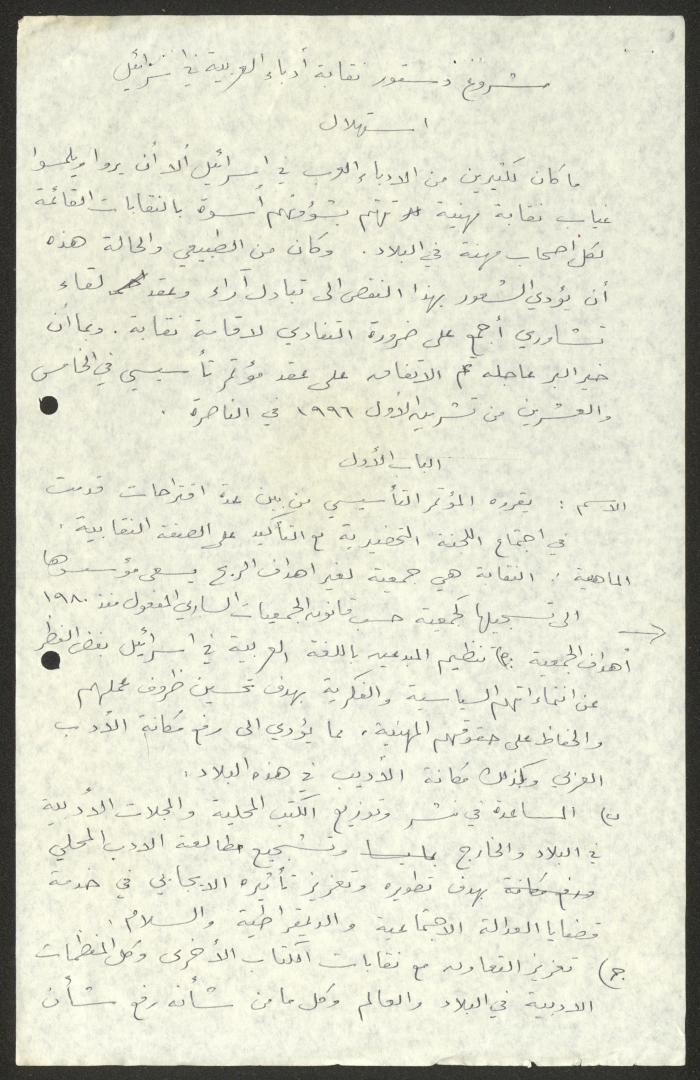 مشروع دستور نقابة أدباء العربية في اسرائيل
استهلال
ما كان لكثيرين من الادباء العرب في اسرائيل ألا أن يروا ويلمسوا
غياب نقابة مهنية تهتم بشؤونهم أسوة بالنقابات القائمة
لكل اصحاب مهنة في البلاد. وكان من الطبيعي والحالة هذه
أن يؤدي الشعور بهذا النقص الى تبادل آراء وعقد لقاء
تشاوري أجمع على ضرورة التنادي لاقامة نقابة. وبما أن
خير البر عاجله تم الاتفاق على عقد مؤتمر تأسيسي في الخامس
والعشرين من تشرين الأول ١٩٩٦ في الناصرة.
الباب الأول
الاسم: يقرره المؤتمر التأسيسي من بين عدة اقتراحات قدمت
في اجتماع اللجنة التحضيرية مع التأكيد على الصفة النقابية.
الماهية: النقابة هي جمعية لغير اهداف الربح يسعى مؤسسوها
الى تسجيلها كجمعية حسب قانون الجمعيات الساري المفعول منذ ١٩٨٠
أهداف الجمعية: أ) تنظيم المبدعين باللغة العربية في اسرائيل بغض النظر
عن انتماءاتهم السياسية والفكرية بهدف تحسين ظروف عملهم
والحفاظ على حقوقهم المهنية، مما يؤدي الى رفع مكانة الأدب
العربي وكذلك مكانة الأديب في هذه البلاد.
ب) المساعدة في نشر وتوزيع الكتب المحلية والمجلات الأدبية
في البلاد والخارج وتشجيع مطالعة الادب المحلي
ورفع مكانة بهدف تطويره وتعزيز تأثيره الايجابي في خدمة
قضايا العدالة الاجتماعية والديمقراطية والسلام.
ج) تعزيز التعاون مع نقابات الكتاب الأخرى وكل المنظمات
الادبية في البلاد والعالم وكل ما من شأنه رفع شأن